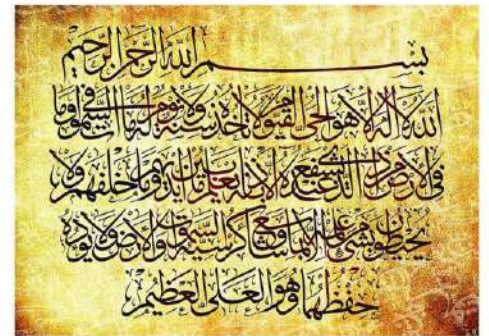 بسم الله الرحمن الرحيم
الله لا اله الا هو الحي القيوم لا تاخذه سنة ولا نوم له ما في السموات وما
في الارض من ذا الذي يشفع عنده الا باذنه يعلم ما بين ايديهم وما خلفهم ولا
يحيطون بشيء من علمه الا بما شاء وسع كرسيه السموات والارض ولا يوده
حفظهما وهو العلي العظيم